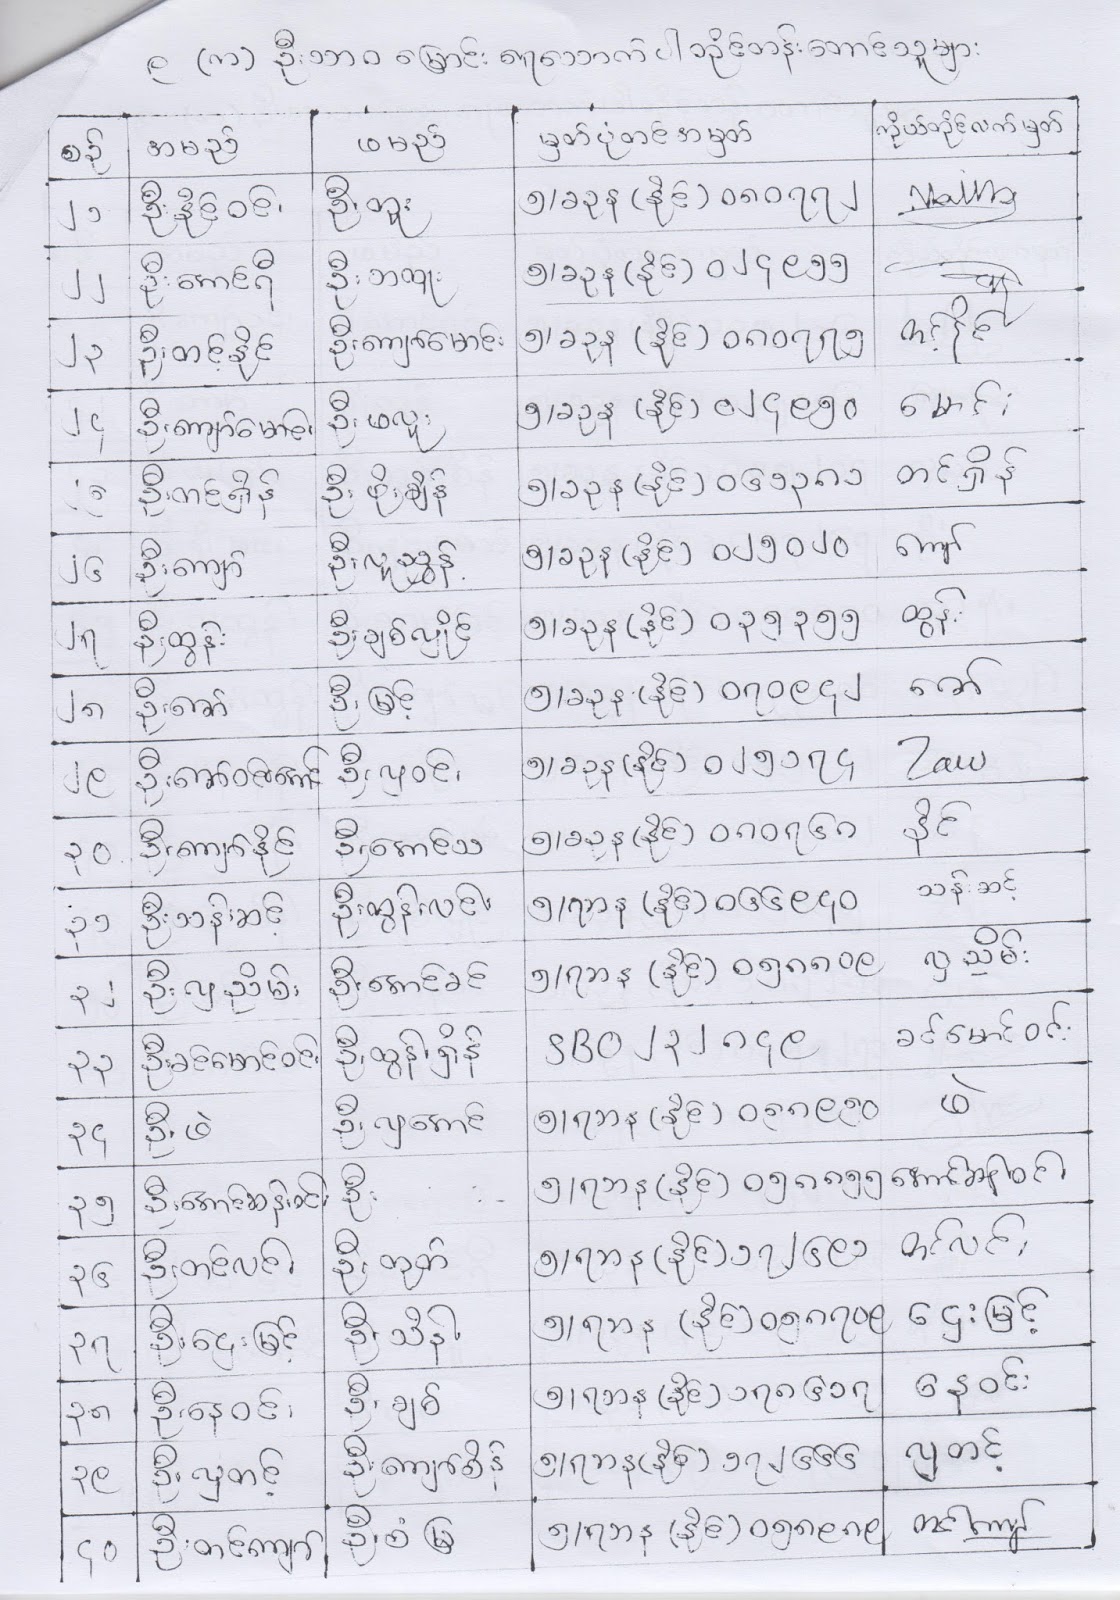 ၉ (က) ဦးဘဝ မြောင်း ရေသောက် ပါ ခိုင်တန်း တောင်သူများ
စဉ် အမည် ဖမည် မှတ်ပုံတင်အမှတ် ကိုယ်တိုင်လက်မှတ်
၂၁ ဦးနိုင်ဝင်း ဦးဘူး ၅/ခဥန(နိုင်) ၀၈၀၇၇၂
၂၂ ဦးကောင်ရီ ဦးဘထူး ၅/ခဥန(နိုင်) ၀၂၄၉၅၅
၂၃ ဦးတင့်နိုင် ဦးကျော်မောင်း ၅/ခဥန (နိုင်) ၀၈၀၇၇၅ တင့်နိုင်
၂၄ ဦးကျော်မောင်း ဦးဖလူး ၅/ခဥန (နိုင်) ၀၂၄၉၅၀ မောင်း
၂၅ ဦးတင်ရှိန် ဦးဖိုးချိန် ၅/ခဥန(နိုင်) ၀၆၁၃၈၁ တင်ရှိန်
၂၆ ဦးကျော် ဦးလူညွန့် ၅/ခဥန(နိုင်) ၀၂၅၀၂၀ ကျော်
၂၇ ဦးထွန်း ဦးချစ်လှိုင် ၅/ခဥန(နိုင်) ၀၃၅၃၅၅ ထွန်း
၂၈ ဦးဇော် ဦးမြင့် ၅/ခဥန(နိုင်) ၀၇၀၉၄၂ ဇော်
၂၉ ဦးဇော်ဝင်းအောင် ဦးလှဝင်း ၅/ခဥန(နိုင်) ၀၂၅၁၇၄ Zaw
၃၀ ဦးကျော်နိုင် ဦးအောင်သ ၅/ခဥန(နိုင်) ၀၈၀၇၆၈ နိုင်
၃၁ ဦးသန်းဆင့် ဦးထွန်းလင်း ၅/ရဘန (နိုင်) ၀၆၆၉၄၀ သန်းဆင့်
၃၂ ဦးလှညိမ်း ဦးအောင်ခင် ၅/ရဘန (နိုင်) ၀၅၈၈၀၉ လှညိမ်း
၃၃ ဦးခင်မောင်ဝင်း ဦးထွန်းရှိန် SBO ၂၃၂၈၄၉ ခင်မောင်ဝင်း
၃၄ ဦးဖဲ ဦးလှအောင် ၅/ရဘန (နိုင်) ဖဲ
၃၅ ဦးအောင်ဆန်းဝင်း ဦး ၅/ရဘန(နိုင်) ၀၅၈၈၅၅ အောင်ဆန်းဝင်း
၃၆ ဦးတင်လင်း ဦးဘုတ် ၅/ရဘန(နိုင်)၁၇၂၆၉၁ တင်လင်း
၃၇ ဦးဌေးမြင့် ဦးသိန်း ၅/ရဘန (နိုင်)၀၅၈၇၀၉ ဌေးမြင့်
၃၈ ဦးနေဝင်း ဦးချစ် ၅/ရဘန(နိုင်)၁၇၈၆၁၇ နေဝင်း
၃၉ ဦးလှတင့် ဦးကျော်စိန် ၅/ရဘန(နိုင်) ၁၇၂၆၆၆ လှတင့်
၄၀ ဦးတင်ကျော် ဦးစံမြ ၅/ရဘန (နိုင်) ၀၅၈၉၈၉ တင်ကျော်